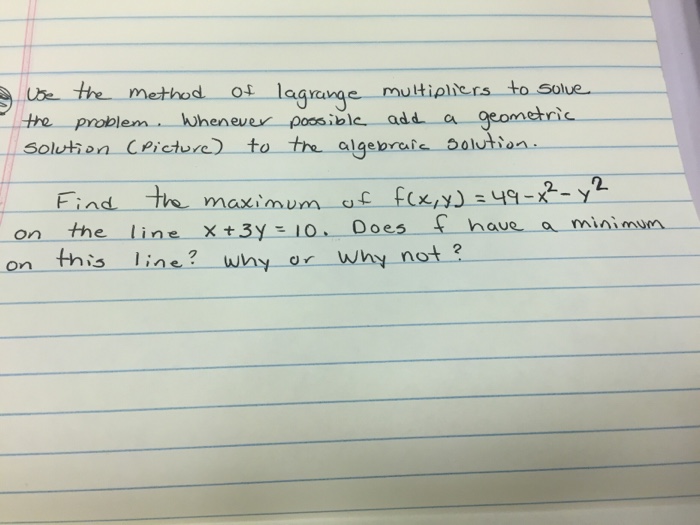 Use the method of lagrange multipliers to solve
the problem. Whenever possible add a geometric
solution (picture) to the algebraic solution.
Find the maximum of f(x,y) = 49-x²-y²
on the line x+3y=10. Does f have a minimum
on this line? why or why not?